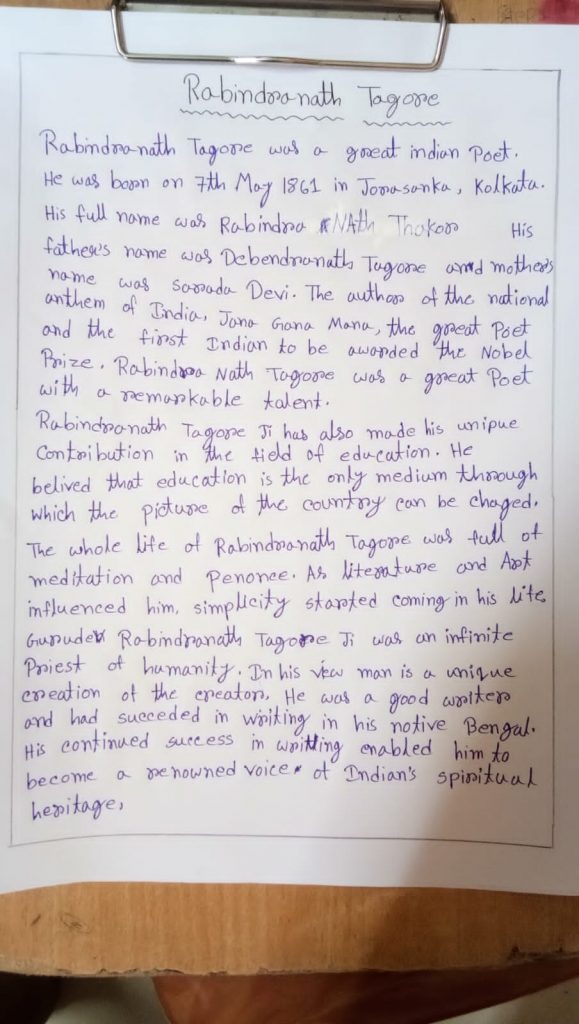 Rabindranath Tagore
Rabindranath Tagore was a great indian Poet.
He was born on 7th May 1861 in Jorasanka, Kolkata.
His full name was Rabindra NAth Thakor His
father's name was Debendranath Tagore and mother's
name was Sarada Devi. The author of the national
anthem of India, Jana Gana Mana, the great Poet
and the first Indian to be awarded the Nobel
Prize. Rabindra Nath Tagore was a great Poet
with a remarkable talent.
Rabindranath Tagore Ji has also made his unipue
Contribution in the field of education. He
belived that education is the only medium through
which the picture of the country can be chaged.
The whole life of Rabindranath Tagore was full of
meditation and penonce. As literature and Art
influenced him, simplicity started coming in his life
Gurudev Rabindranath Tagore Ji was an infinite
Priest of humanity. In his view man is a unique
creation of the creator. He was a good writer
and had succeded in writing in his notive Bengal.
His continued success in writting enabled him to
become a renowned voice of Indian's spiritual
heritage,